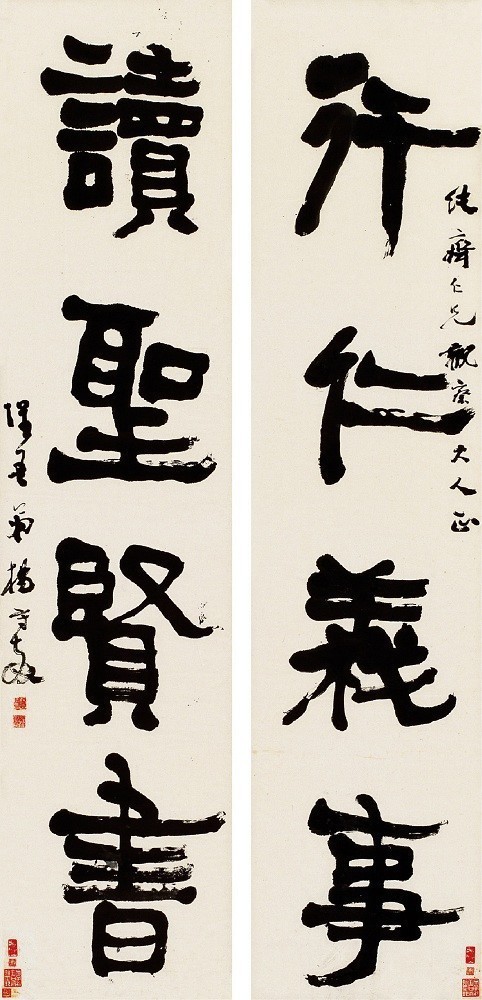 純齋仁兄觀察大人正
行仁義事
讀聖賢書
惺吾弟楊守敬